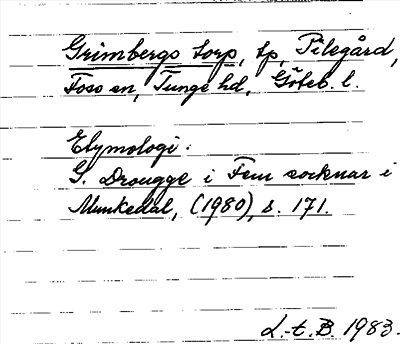 Grimbergs torp, tp, Pilegård,
Foss sn, Tunge hd, Göteb. l.
Etymologi:
G. Drougge i Fem socknar i
Munkedal, (1980), s. 171.
L-t. B. 1983.